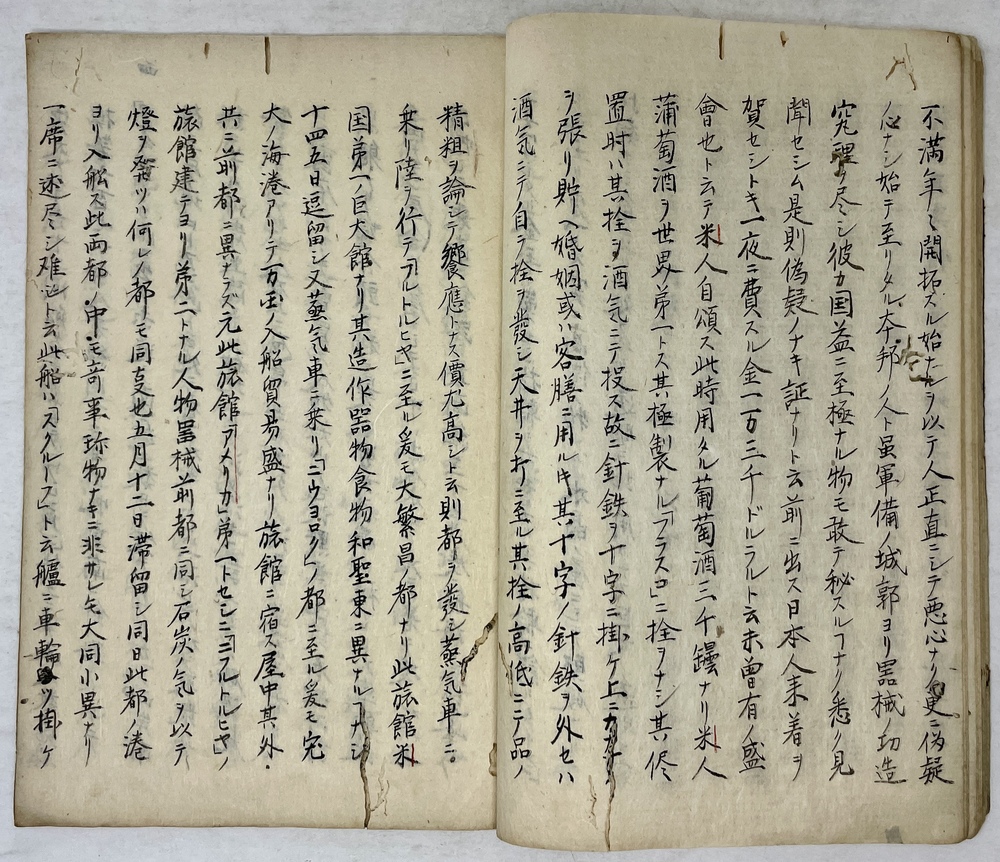 不満年ミ開拓スル始ナルヲ以テ人正直ニシテ悪心ナク更ニ偽疑
心ナシ始テ至リタル本邦ノ人ト虽軍備ノ城郭ヨリ噐械ノ切造
究理ヲ尽シ彼カ国益ニ至極ナル物モ敢テ秘スルヿナク悉ク見
聞セシム是則偽疑ノナキ証ナリト云前ニ出ス日本人来着ヲ
賀セシトキ一夜ニ費スル金一万三千ドルラルト云未曽有ノ盛
會也ト云テ米人自頌ス此時用タル葡萄酒三千罎ナリ米人
蒲萄酒ヲ世界第一トス其極製ナル「フラスコ」ニ拴ヲナシ其侭
置时ハ其拴ヲ酒気ニテ投ス故ニ針鉄ヲ十字ニ掛ケ上ニ
ヲ張リ貯ヘ婚姻或ハ客膳ニ用ルキ其十字ノ針鉄ヲ外セハ
酒気ニテ自テ拴ヲ發シ天井ヲ打ニ至ル其拴ノ高低ニテ品ノ
精粗ヲ論シテ饗應トナス價尤高シト云則都ヲ發シ蒸気車ニ
乗リ陸ヲ行テ「ヒルトルヒヤ」ニ至ル爰モ大繁昌ノ都ナリ此旅館米
国第一ノ巨大館ナリ其造作器物食物和聖東ニ異ナルヿナシ
十四五日逗留シ又蒸気車ニ乗リ「ニウヨロク」ノ都ニ至ル爰モ宏
大ノ海港アリテ万国ノ入船貿易盛ナリ旅館ニ宿ス屋中其外
共ニ前都ニ異ナラズ元此旅館アメリカ第一トセシニ「ヒルトルヒヤ」ノ
旅館建テヨリ第二トナル人物噐械前都ニ同シ石炭ノ気ヲ以テ
燈ヲ發ツハ何レノ都モ同叓也五月十二日滞留シ同日此都ノ港
ヨリ入船ス此両都ノ中ニモ奇事珎物ナキニ非サレモ大同小異ナリ
一席ニ述尽シ难シト云此船ハ「スクルーフ」ト云艫ニ車輪ツ掛ケ